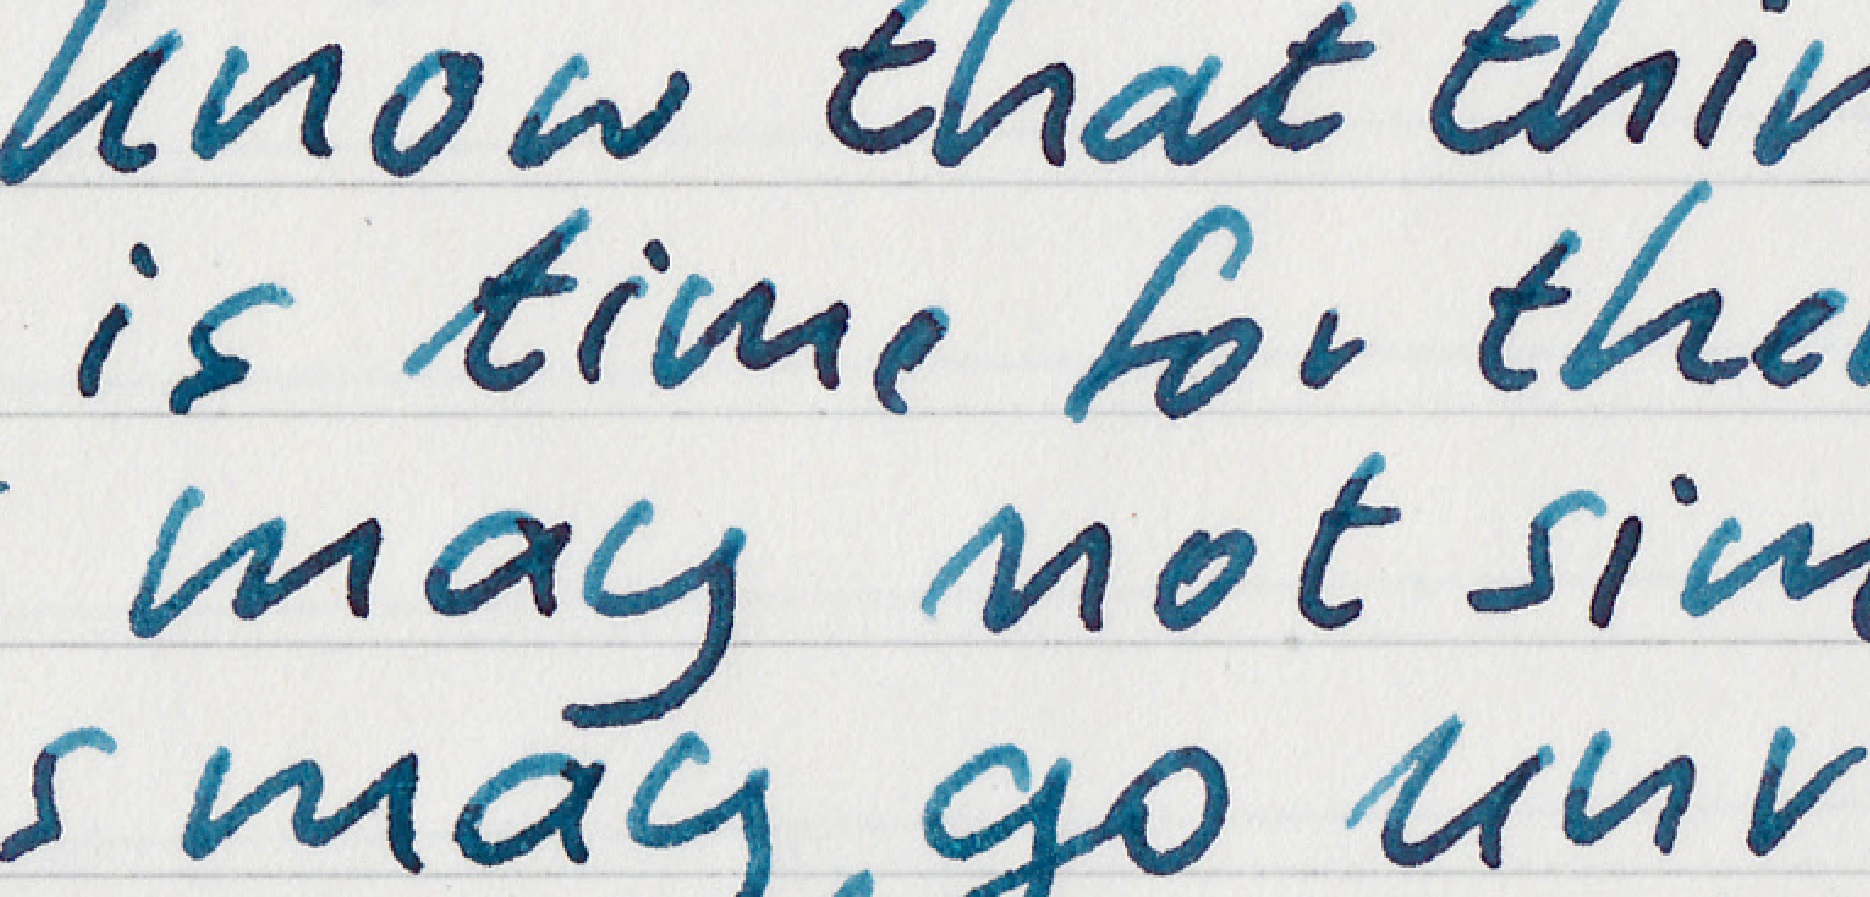 know that thin
is time for the
may not sim
s may go unv